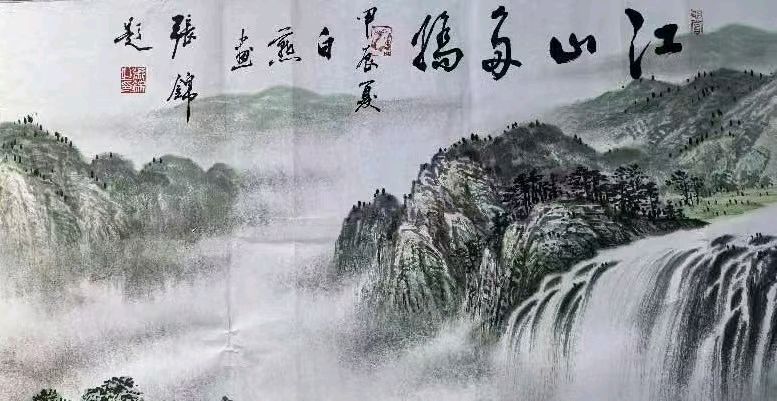 江山多嬌
甲辰夏
白燕画
張錦
題